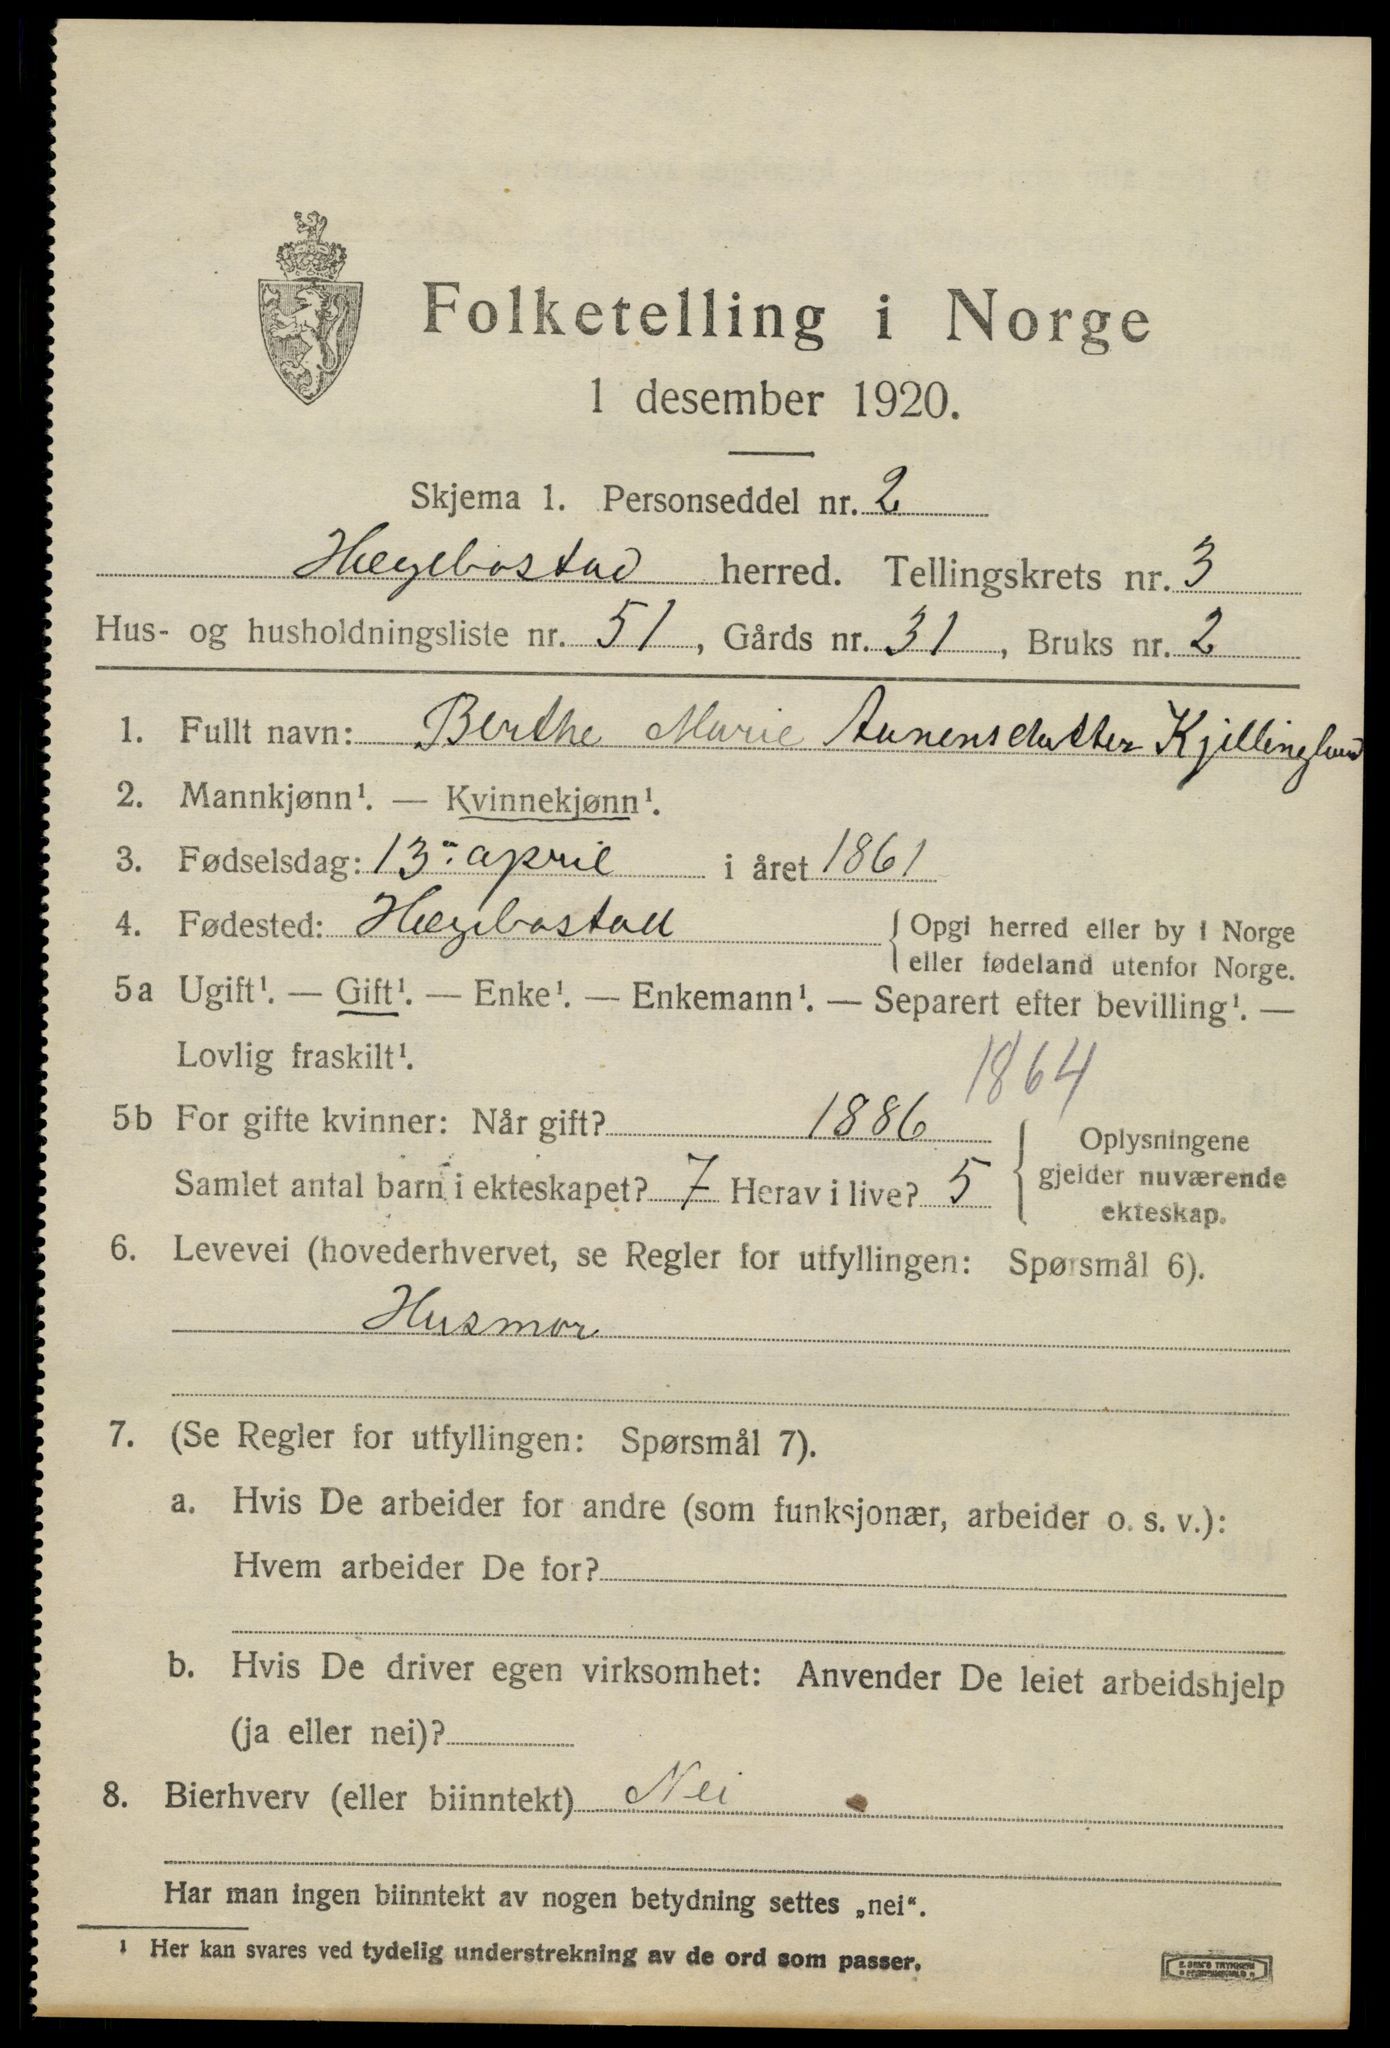 Folketelling i Norge
1 desember 1920.
Skjema 1. Personseddel nr. 2
Hægebostad herred. Tellingskrets nr. 3
Hus- og husholdningsliste nr. 51, Gårds nr. 31, Bruks nr. 2
1. Fullt navn: Berthe Marie Aanensdatter Kjillingland
2. Mannkjønn¹. — Kvinnekjønn¹.
3. Fødselsdag: 13de april i året 1861
4. Fødested: Hægebostad { Opgi herred eller by i Norge
eller fødeland utenfor Norge.
5a Ugift¹. — Gift¹. — Enke¹. — Enkemann¹. — Separert efter bevilling¹. —
Lovlig fraskilt¹.
1864
5b For gifte kvinner: Når gift? 1886
Samlet antal barn i ekteskapet? 7 Herav i live? 5
{ Oplysningene
gjelder nuværende
ekteskap.
6. Levevei (hovederhvervet, se Regler for utfyllingen: Spørsmål 6).
Husmor
7. (Se Regler for utfyllingen: Spørsmål 7).
a. Hvis De arbeider for andre (som funksjonær, arbeider o. s. v.):
Hvem arbeider De for?
b. Hvis De driver egen virksomhet: Anvender De leiet arbeidshjelp
(ja eller nei)?
8. Bierhverv (eller biinntekt) Nei
Har man ingen biinntekt av nogen betydning settes „nei“.
¹ Her kan svares ved tydelig understrekning av de ord som passer.